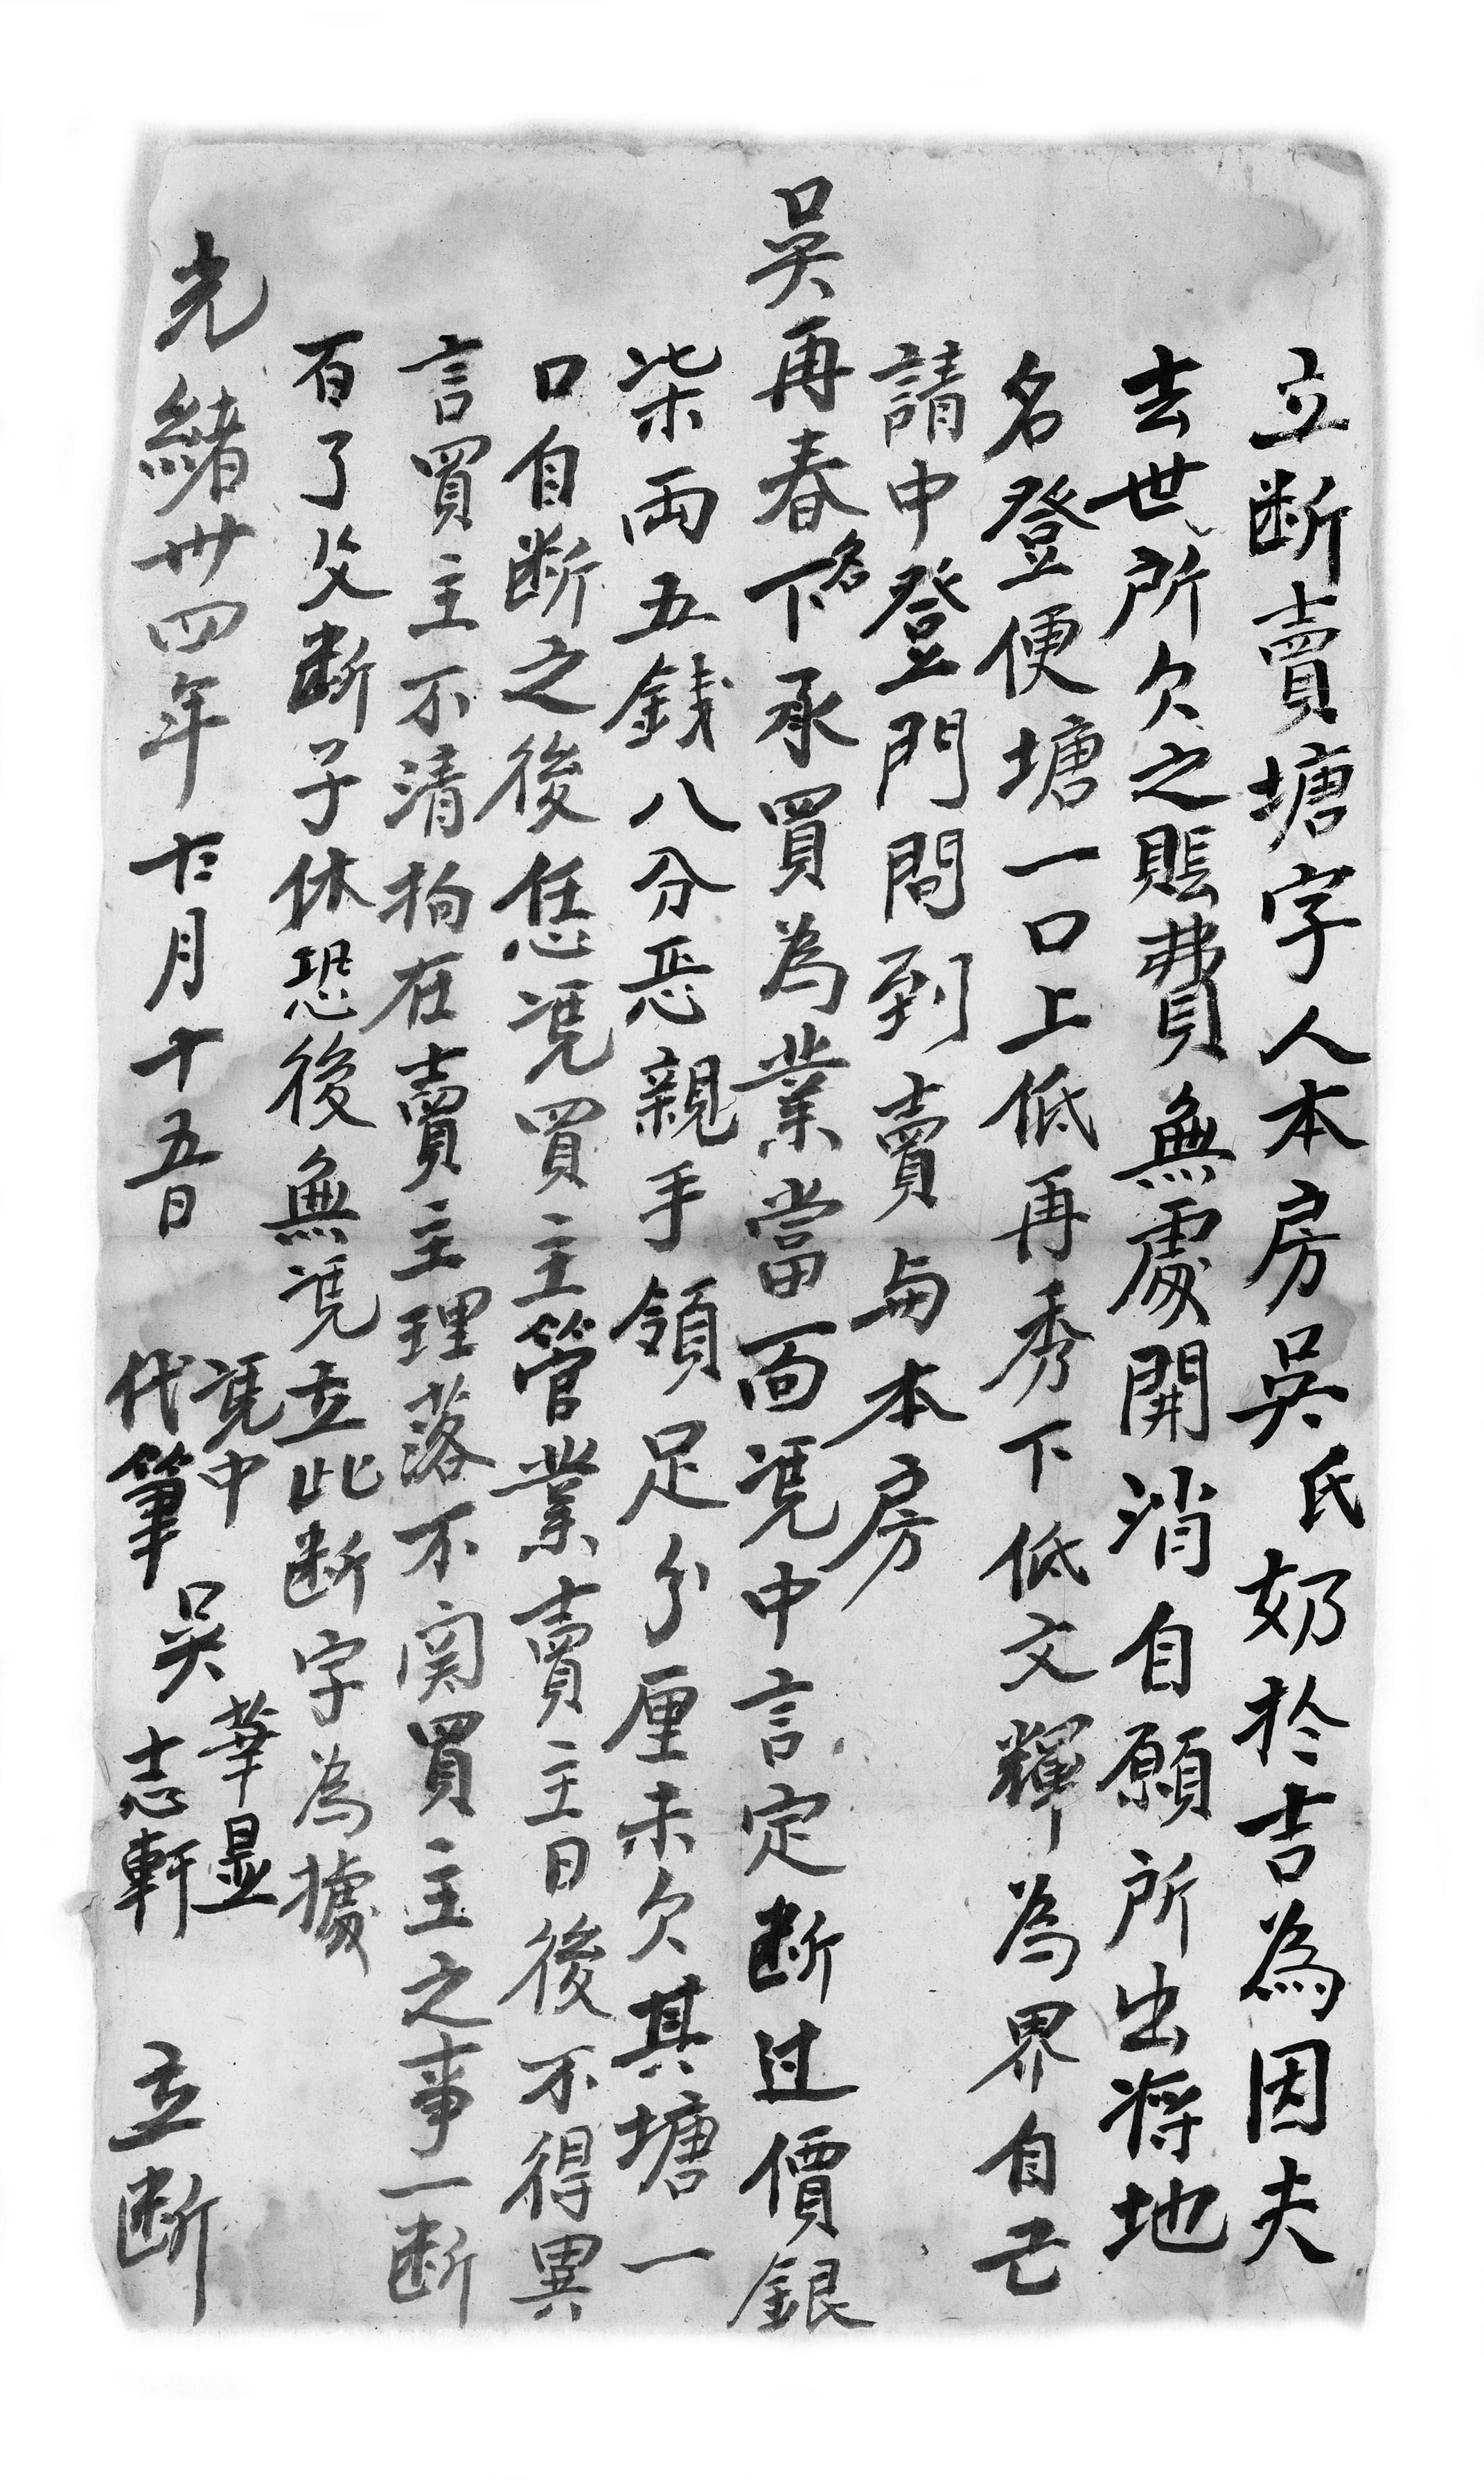 立断賣塘字人本房吳氏妳於吉為因夫
去世所欠之賬費無處開消自願所出將地
名登便塘一口上低再秀下低文輝為界自己
請中登門問到賣與本房
吳再春名下承買為業當面凴中言定断过價銀
柒両五錢八分恁親手領足分厘未欠其塘一
口自断之後恁凴買主管業賣主日後不得異
言買主不清拘在賣主理落不関買主之事一断
百了父断子休恐後無凴立此断字為據
光緒卅四年十二月十五日
凴中 吳華显
代筆 吳志軒
立断